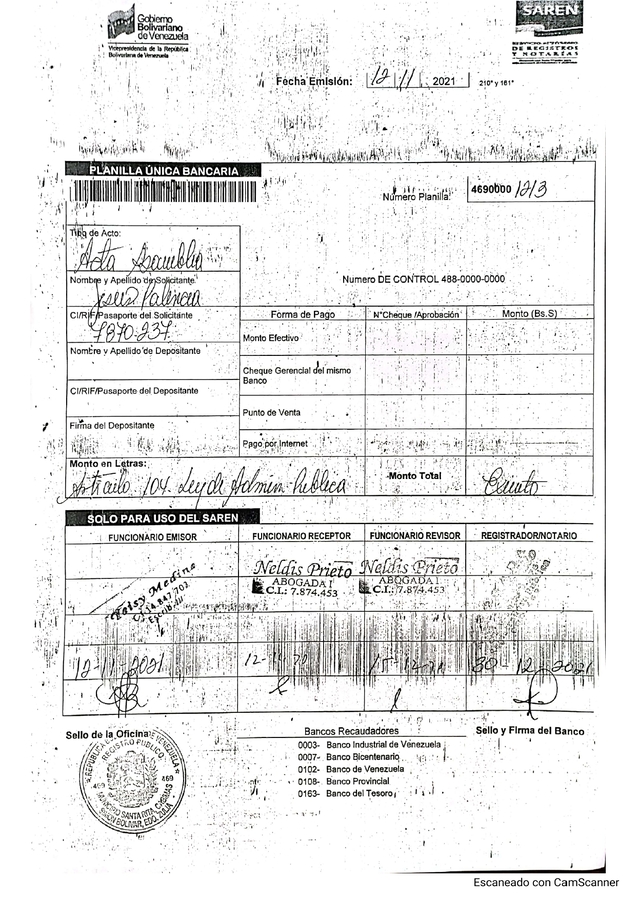 Gobierno
Bolivariano
de Venezuela
Vicepresidencia de la República
Bolivariana de Venezuela
SAREN
SERVICIO AUTÓNOMO
DE REGISTROS
Y NOTARÍAS
Fecha Emisión: 12 / 11 / 2021 210° y 161°
PLANILLA ÚNICA BANCARIA
Número Planilla: 4690000 1213
Tipo de Acto:
Acta Asamblea
Numero DE CONTROL 488-0000-0000
Nombre y Apellido de Solicitante
Jesús Valencia
CI/RIF/Pasaporte del Solicitante
7870.237
Forma de Pago N°Cheque /Aprobación Monto (Bs.S)
Monto Efectivo
Nombre y Apellido de Depositante
Cheque Gerencial del mismo
Banco
CI/RIF/Pasaporte del Depositante
Punto de Venta
Firma del Depositante
Pago por Internet
Monto en Letras:
Artículo 104 Ley de Admin Publica
Monto Total
SOLO PARA USO DEL SAREN
FUNCIONARIO EMISOR FUNCIONARIO RECEPTOR FUNCIONARIO REVISOR REGISTRADOR/NOTARIO
Daisy Medina
Neldis Prieto Neldis Prieto
ABOGADA I ABOGADA I
C.I.: 7.874.453 C.I.: 7.874.453
12-11-2021 30-12-2021
Sello de la Oficina
Bancos Recaudadores
Sello y Firma del Banco
0003- Banco Industrial de Venezuela
0007- Banco Bicentenario
0102- Banco de Venezuela
0108- Banco Provincial
0163- Banco del Tesoro
REPÚBLICA BOLIVARIANA DE VENEZUELA
REGISTRO PÚBLICO
469 469
MUNICIPIO SANTA RITA, CABIMAS
SIMÓN BOLÍVAR, EDO. ZULIA
Escaneado con CamScanner